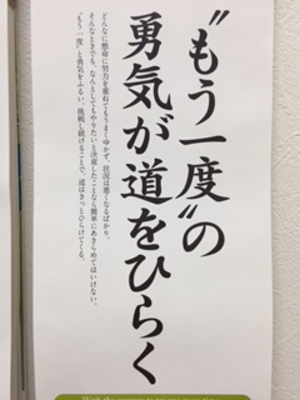 〝もう一度〟の
勇気が道をひらく
どんなに懸命に努力を重ねてもうまくゆかず、状況は悪くなるばかり。
そんなときでも、なんとしてもやりたいと決意したことなら簡単にあきらめてはいけない。
〝もう一度〟と勇気をふるい、挑戦し続けることで、道はきっとひらけてくる。